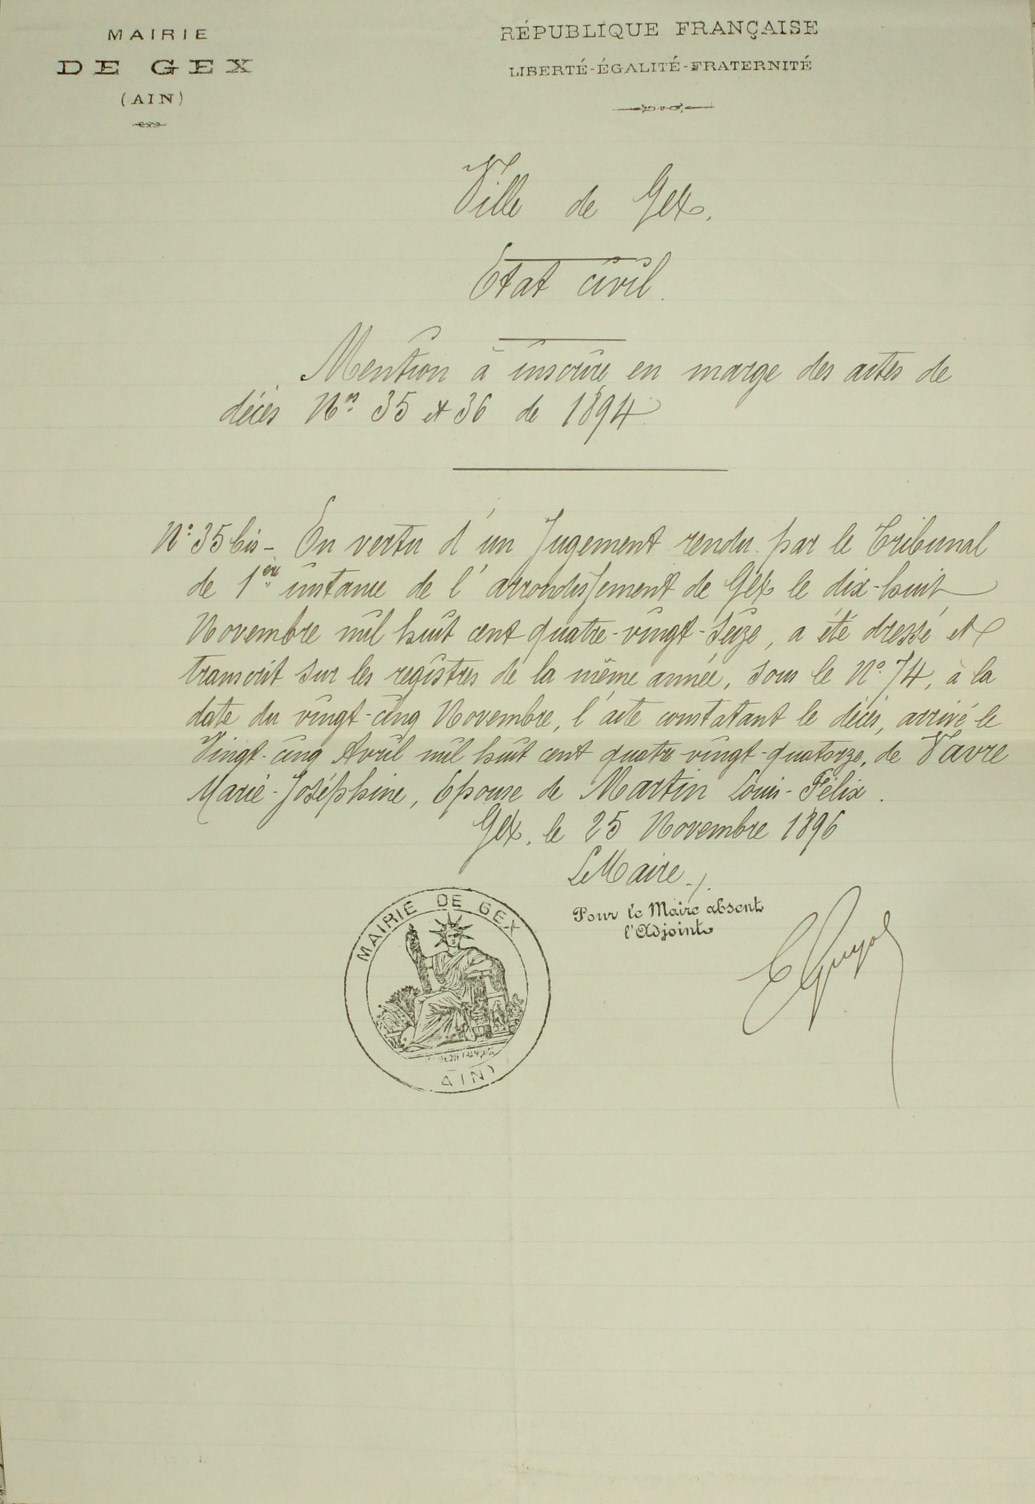 MAIRIE
DE GEX
(AIN)
RÉPUBLIQUE FRANÇAISE
LIBERTÉ-ÉGALITÉ-FRATERNITÉ
Ville de Gex.
Etat civil.
Mention à inscrire en marge des actes de
décès Nos 35 et 36 de 1894
N° 35 bis - En vertu d'un Jugement rendu par le Tribunal
de 1ère instance de l'arrondissement de Gex le dix-huit
Novembre mil huit cent quatre-vingt-seize, a été dressé et
transcrit sur les registres de la même année, sous le N° 74, à la
date du vingt-cinq Novembre, l'acte constatant le décès, arrivé le
Vingt-cinq Avril mil huit cent quatre-vingt-quatorze, de Vavre
Marie-Joséphine, Epouse de Martin Louis-Félix.
Gex, le 25 Novembre 1896
Le Maire,
Pour le Maire absent
l'Adjoint
MAIRIE DE GEX
(AIN)